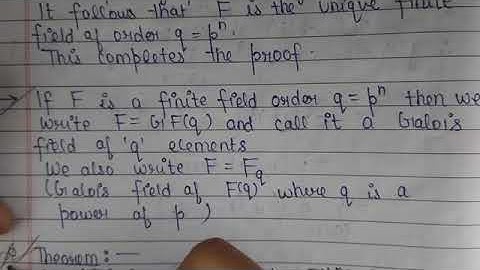 It follows that F is the unique finite
field of order q = pⁿ.
This completes the proof.
→ If F is a finite field order q = pⁿ then we
write F = GF(q) and call it a Galois
field of 'q' elements
We also write F = F_q
(Galois field of F(q) where q is a
power of p)
Theorem :—